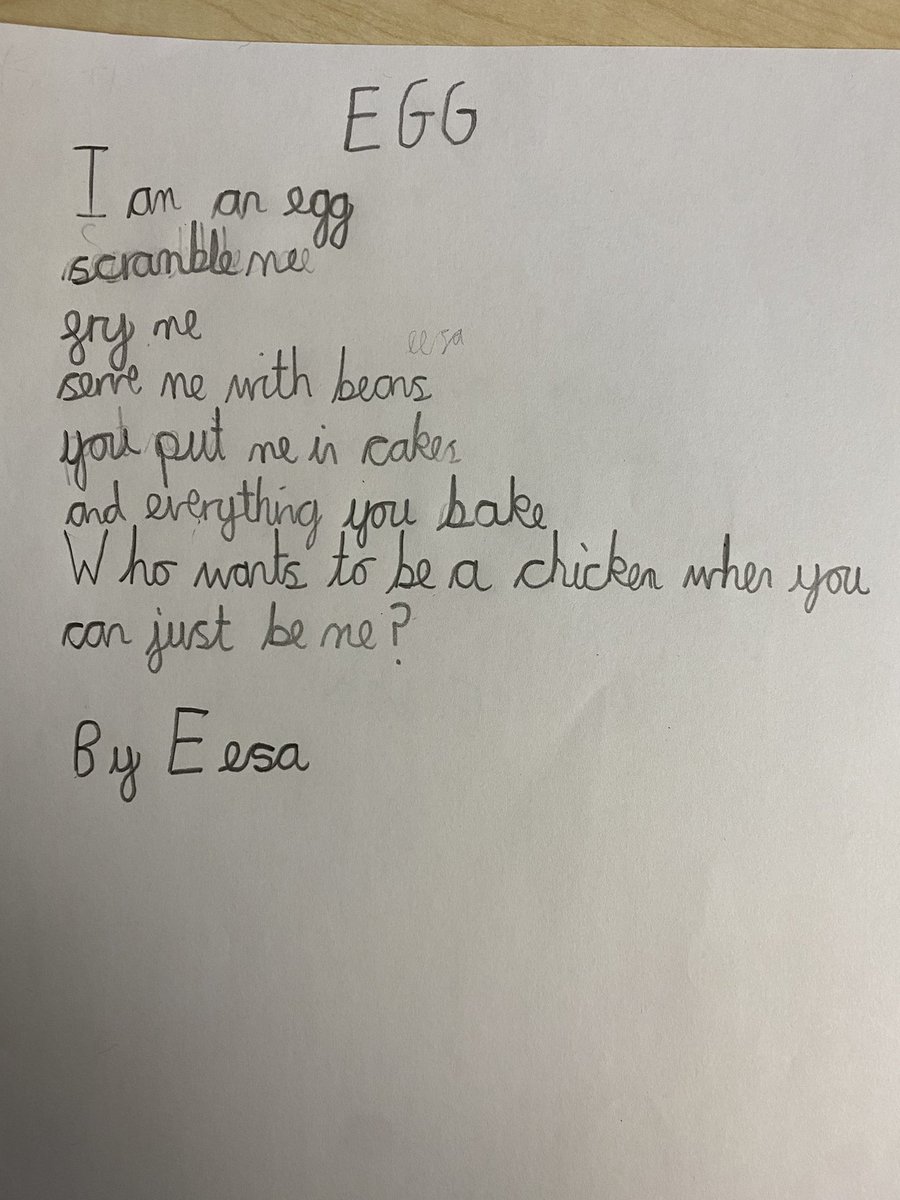 EGG
I am an egg
scramble me
fry me
eesa
serve me with beans
you put me in cakes
and everything you bake
Who wants to be a chicken when you
can just be me?
By Eesa